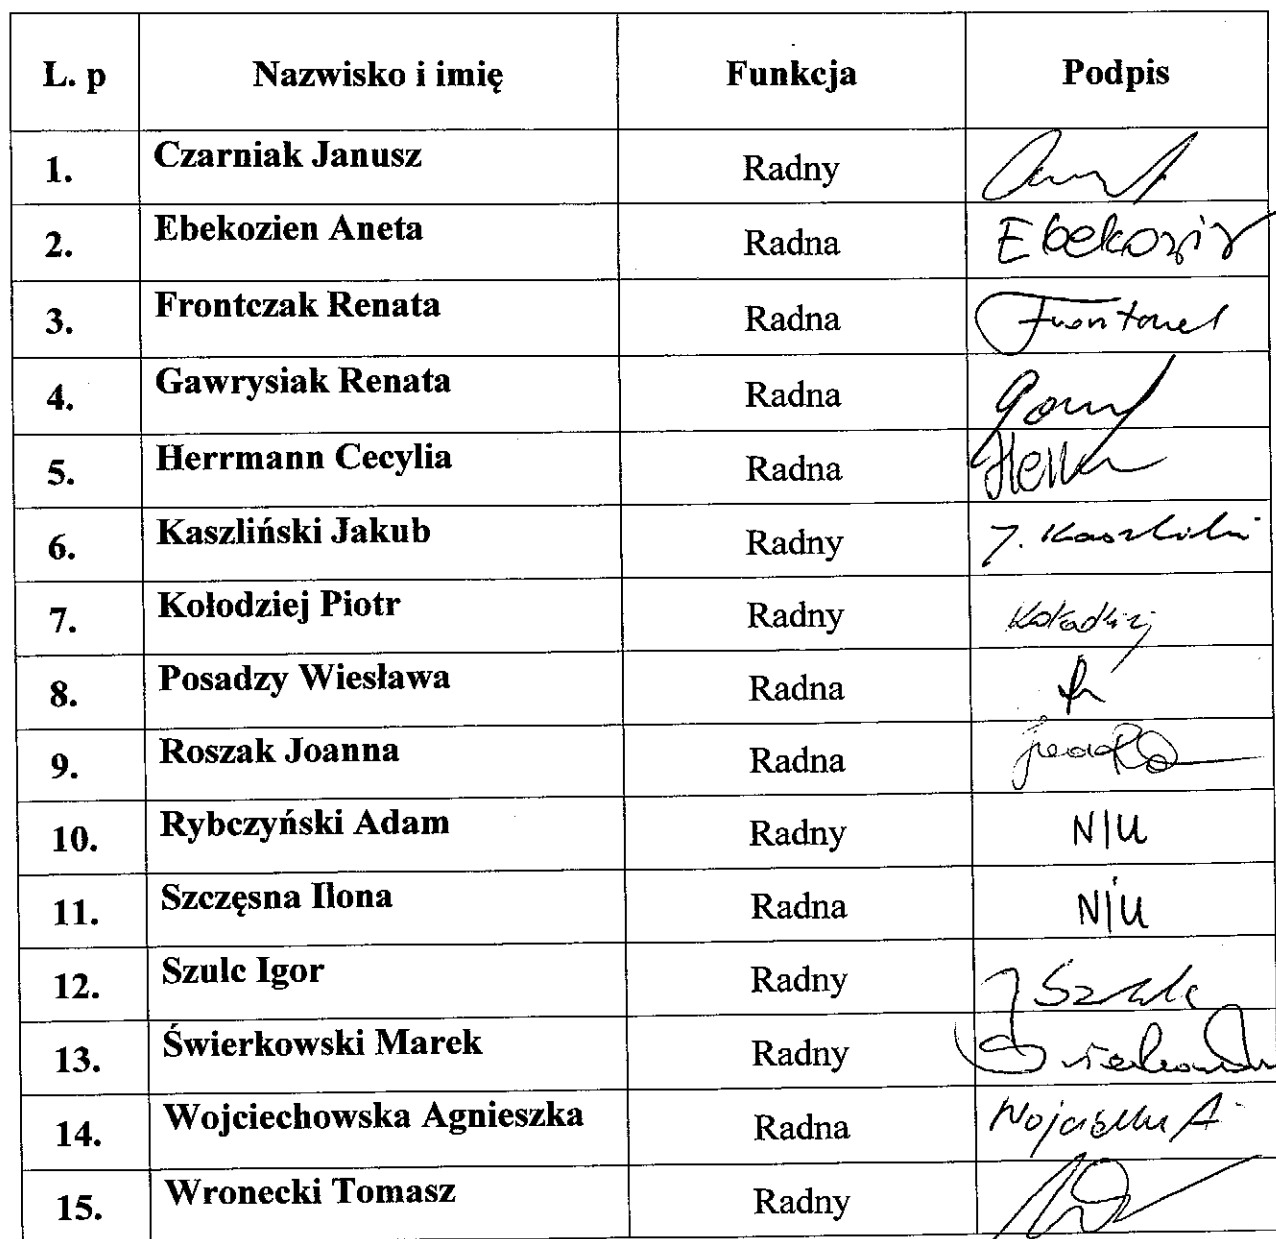 L. p Nazwisko i imię Funkcja Podpis
1. Czarniak Janusz Radny
2. Ebekozien Aneta Radna Ebekozien
3. Frontczak Renata Radna
4. Gawrysiak Renata Radna
5. Herrmann Cecylia Radna
6. Kaszliński Jakub Radny J. Kaszliński
7. Kołodziej Piotr Radny Kołodziej
8. Posadzy Wiesława Radna
9. Roszak Joanna Radna
10. Rybczyński Adam Radny N|U
11. Szczęsna Ilona Radna N|U
12. Szulc Igor Radny I Szulc
13. Świerkowski Marek Radny
14. Wojciechowska Agnieszka Radna
15. Wronecki Tomasz Radny